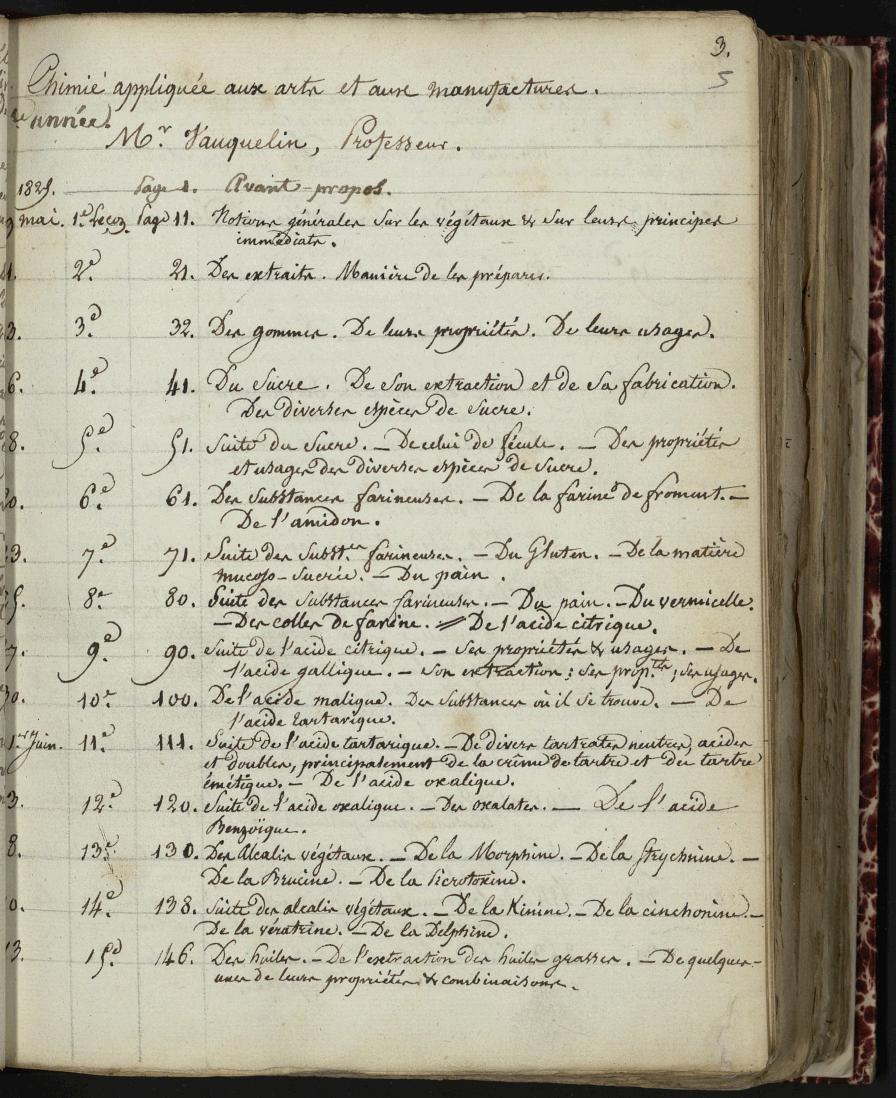 3.
5
Chimie appliquée aux arts et aux manufactures.
année.
Mr. Vauquelin, Professeur.
1825. Page 1. Avant-propos.
9 mai. 1e Leçon. Page 11. Notions générales sur les végétaux & sur leurs principes
immédiats.
2e. 21. Des extraits. Manière de les préparer.
3. 3e. 32. Des gommes. De leurs propriétés. De leurs usages.
6. 4e. 41. Du Sucre. De son extraction et de sa fabrication.
Des diverses espèces de sucre.
8. 5e. 51. Suite du sucre. — De celui de fécule. — Des propriétés
et usages des diverses espèces de sucre.
0. 6e. 61. Des substances farineuses. — De la farine de froment. —
De l'amidon.
23. 7e. 71. Suite des Subst.es farineuses. — Du Gluten. — De la matière
mucoso-sucrée. — Du pain.
5. 8e. 80. Suite des substances farineuses. — Du pain. — Du vermicelle.
— Des colles de farine. // De l'acide citrique.
7. 9e. 90. Suite de l'acide citrique. — Ses propriétés & usages. — De
l'acide gallique. — Son extraction ; ses prop.tés ; ses usages.
30. 10e. 100. De l'acide malique. Des substances où il se trouve. — De
l'acide tartarique.
1.er Juin. 11e. 111. Suite de l'acide tartarique. — De divers tartrates neutres, acides
et doubles, principalement de la crême de tartre et du tartre
émétique. — De l'acide oxalique.
3. 12e. 120. Suite de l'acide oxalique. — Des oxalates. — De l'acide
Benzoïque.
8. 13e. 130. Des Alcalis végétaux. — De la Morphine. — De la Strychnine. —
De la Brucine. — De la Picrotoxine.
0. 14e. 138. Suite des alcalis végétaux. — De la Kinine. — De la cinchonine. —
De la vératrine. — De la Delphine.
13. 15e. 146. Des huiles. — De l'extraction des huiles grasses. — De quelques-
unes de leurs propriétés & combinaisons.